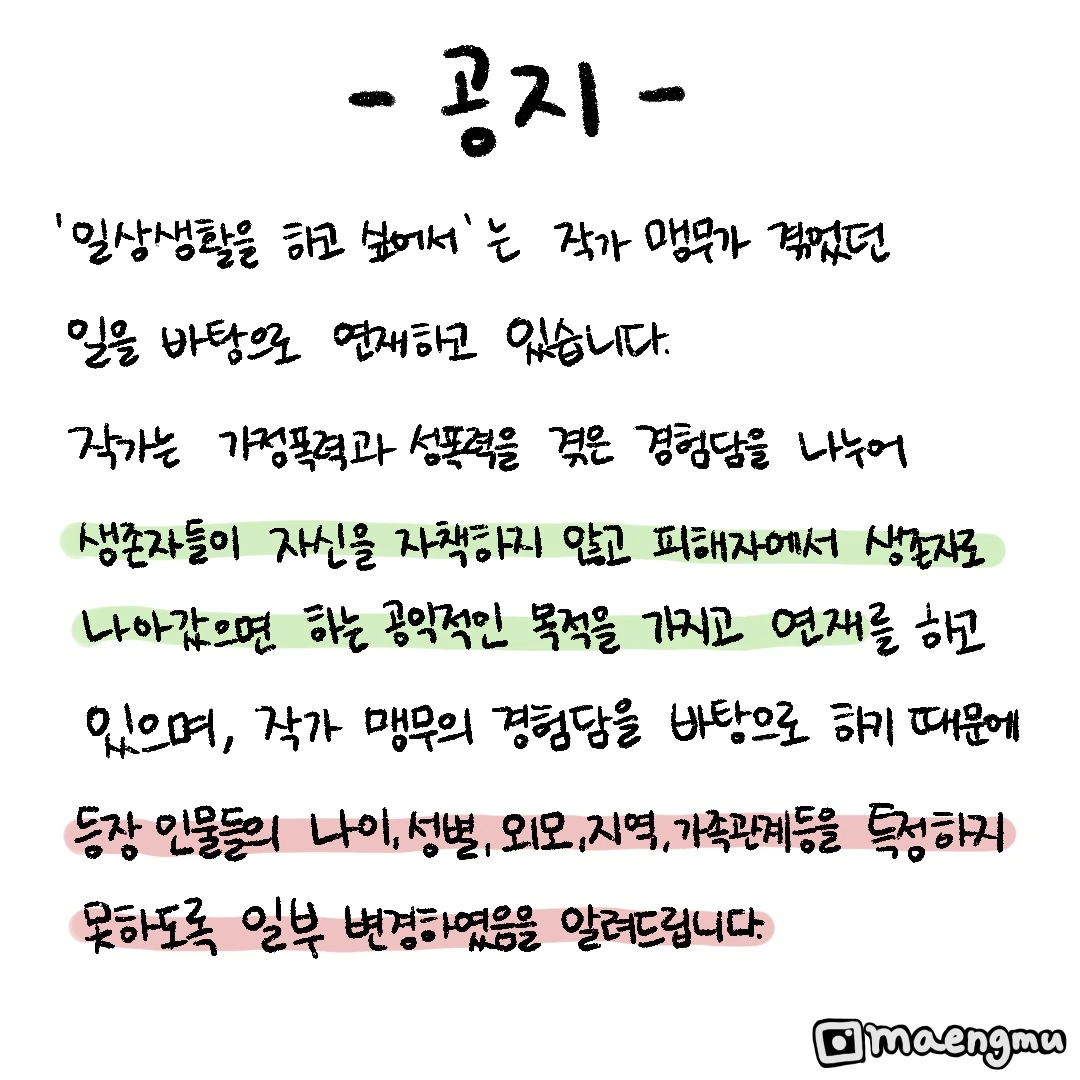 - 공지 -
'일상생활을 하고 싶어서'는 작가 맹무가 겪었던
일을 바탕으로 연재하고 있습니다.
작가는 가정폭력과 성폭력을 겪은 경험담을 나누어
생존자들이 자신을 자책하지 않고 피해자에서 생존자로
나아갔으면 하는 공익적인 목적을 가지고 연재를 하고
있으며, 작가 맹무의 경험담을 바탕으로 하기 때문에
등장 인물들의 나이, 성별, 외모, 지역, 가족관계등을 특정하지
못하도록 일부 변경하였음을 알려드립니다.
maengmu